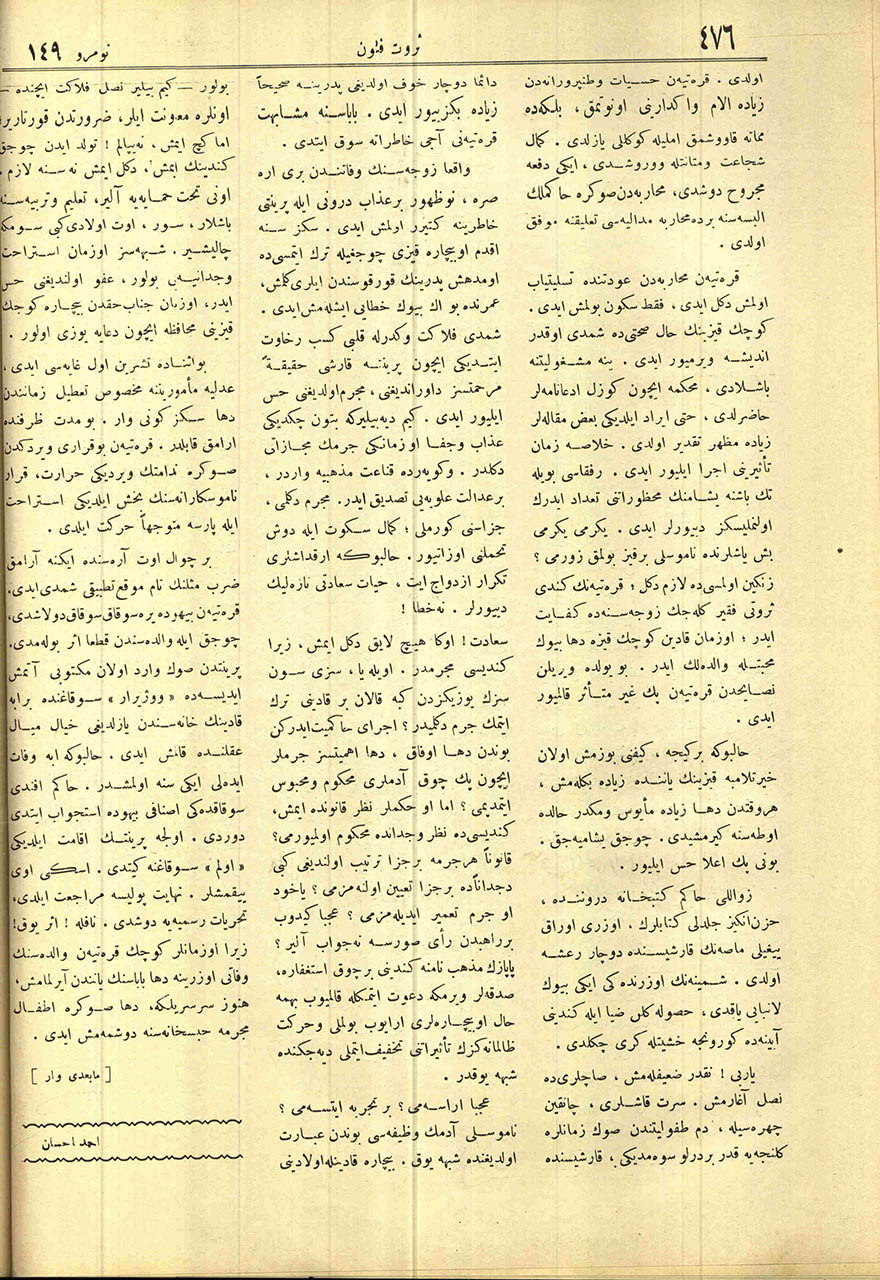 ٤٧٦
ثروت فنون
نومرو ١٤٩
اولدی . قره‌تیه‌ن حسیات وطنپرورانه‌دن
زیاده الام واكدارینی اونوتمق ، بلكه‌ده
مماته قاووشمق املیله كوكللی یازلدی . كمال
شجاعت ومتانتله ووروشدی ، ایكی دفعه
مجروح دوشدی، محاربه‌دن صوكره حاكملك
البسه‌سنه برده‌محاربه مدالیه‌سی تعلیقنه موفق
اولدی .
قره‌تیه‌ن محاربه‌دن عودتنده تسلیتیاب
اولمش دكل ایدی ، فقط سكون بولمش ایدی .
كوچك قیزینك حال صحتی‌ده شمدی اوقدر
اندیشه ویرمیور ایدی . ینه مشغولیتنه
باشلادی ، محكمه ایچون كوزل ادعانامه‌لر
حاضرلدی ، حتی ایراد ایلدیكی بعض مقاله‌لر
زیاده مظهر تقدیر اولدی . خلاصه زمان
تأثیرینی اجرا ایلیور ایدی . رفقاسی بویله
تك باشنه یشامنك محظوراتنی تعداد ایدرك
اولنملیسكز دییورلر ایدی . یكرمی یكرمی
بش یاشلرنده ناموسلی برقیز بولمق زورمی ؟
زنكین اولمسی‌ده لازم دكل ؛ قره‌تیه‌نك كندی
ثروتی فقیر كله‌جك زوجه‌سنه‌ده كفایت
ایدر ؛ اوزمان قادین كوچك قیزه دها بیوك
محبتله والده‌لك ایدر . بو یولده ویریلن
نصایحدن قره‌تیه‌ن پك غیر متأثر قالمیور
ایدی .
حالبوكه بركیجه ، كیفنی بوزمش اولان
خیرتلامبه قیزینك یاننده زیاده بكله‌مش ،
هروقتدن دها زیاده مأیوس ومكدر حالده
اوطه‌سنه كیرمشیدی . چوجق یشامیه‌جق .
بونی پك اعلا حس ایلیور .
زواللی حاكم كتبخانه دروننده ،
حزن‌انكیز جلدلی كتابلرك . اوزری اوراق
ییغیلی ماصه‌نك قارشیسنده دوچار رعشه
اولدی . شمینه‌نك اوزرنده كی ایكی بیوك
لانبایی یاقدی ، حصوله كلن ضیا ایله كندینی
آیینه‌ده كورونجه خشیتله كری چكلدی .
یاربی ! نقدر ضعیفله‌مش ، صاچلری‌ده
نصل آغارمش . سرت قاشلری ، چاتقین
چهره‌سیله ، دم طفولیتندن صوك زمانلره
كلنجه‌یه قدر بردرلو سوه‌مدیكی ، قارشیسنده
دائما دوچار خوف اولدیغی پدرینه صحیحاً
زیاده بكزییور ایدی . باباسنه مشابهت
قره‌تیه‌نی آجی خاطراته سوق ایتدی .
واقعا زوجه‌سنك وفاتندن بری اره
صره ، نوظهور برعذاب درونی ایله پرینتی
خاطرینه كتیرر اولمش ایدی . سكز سنه
اقدم اوبیچاره قیزی چوجغیله ترك ایتمسی‌ده
اومدهش پدرینك قورقوسندن ایلری‌كلمش،
عمرنده بو اك بیوك خطایی ایشله‌مش‌ایدی .
شمدی فلاكت وكدرله قلبی كسب رخاوت
ایتدیكی ایچون پرینته قارشی حقیقةً
مرحمتسز داوراندیغنی ، مجرم‌اولدیغنی حس
ایلیور ایدی . كیم دیه‌بیلیركه بتون چكدیكی
عذاب وجفا اوزمانكی جرمك مجازاتی
دكلدر . وكویه‌رده قناعت مذهبیه واردر ،
برعدالت علویه‌یی تصدیق ایدر . مجرم دكلمی ،
جزاسنی كورملی ؛ كمال سكوت ایله دوش
تحملنی اوزاتیور . حالبوكه ارقداشلری
تكرار ازدواج ایت ، حیات سعادتی تازه‌لیك
دییورلر . نه‌خطا !
سعادت ! اوكا هیچ لایق دكل ایمش ، زیرا
كندیسی مجرمدر . اویله یا ، سزی سون
سزك یوزیكزدن كبه قالان بر قادینی ترك
ایتمك جرم دكلمیدر؟ اجرای حاكمیت‌ایدركن
بوندن دها اوفاق ، دها اهمیتسز جرملر
ایچون پك چوق آدملری محكوم ومحبوس
ایتمدیمی ؟ اما او حكملر نظر قانونده ایمش،
كندیسی‌ده نظر وجدانده محكوم اولمیورمی؟
قانوناً هرجرمه برجزا ترتیب اولندیغی كبی
وجداناًده برجزا تعیین اولنه‌مزمی ؟ یاخود
او جرم تعمیر ایدیله‌مزمی ؟ عجبا كیدوب
برراهبدن رأی صورسه نه‌جواب آلیر ؟
پاپازك مذهب نامنه كندینی برچوق استغفاره،
صدقه‌لر ویرمكه دعوت ایتمكله قالمیوب بهمه
حال اوبیچاره‌لری ارایوب بولملی وحركت
ظالمانه‌كزك تأثیراتنی تخفیف‌ایتملی دیه‌جكنده
شبهه یوقدر .
عجبا اراسه‌می ؟ بر تجربه ایتسه‌می ؟
ناموسلی آدمك وظیفه‌سی بوندن عبارت
اولدیغنده شبهه یوق . بیچاره قادینله‌اولادینی
بولور — كیم بیلیر نصل فلاكت ایچنده —
اونلره معونت ایلر، ضرورتدن قورتاریر،
اما كچ ایمش ، نه‌یپالم ! تولد ایدن چوجق
كندینك ایمش، دكل ایمش نه‌سنه لازم .
اونی تحت حمایه‌یه آلیر، تعلیم وتربیه‌سنه
باشلار ، سور ، اوت اولادی‌كی سومكه
چالیشیر . شبهه‌سز اوزمان استراحت
وجدانیه‌سی بولور ، عفو اولندیغنی حس
ایدر ، اوزمان جناب حقدن بیچاره كوچك
قیزینی محافظه ایچون دعایه یوزی اولور .
بواثناده تشرین اول غایه‌سی ایدی ،
عدلیه مأمورینه مخصوص تعطیل زمانندن
دها سكز كونی وار . بو مدت ظرفنده
ارامق قابلدر . قره‌تیه‌ن بوقراری ویردكدن
صوكره ندامتك ویردیكی حرارت، قرار
ناموسكارانه‌سنك بخش ایلدیكی استراحت
ایله پارسه متوجهاً حركت ایلدی .
بر چوال اوت آره‌سنده ایكنه آرامق
ضرب مثلنك تام موقع تطبیقی شمدی‌ایدی.
قره‌تیه‌ن بیهوده یره سوقاق سوقاق دولاشدی،
چوجق ایله والده‌سندن قطعا اثر بوله‌مدی .
پرینتدن صوك وارد اولان مكتوبی آتمش
ایدیسه‌ده « ووژیرار » سوقاغنده برابه
قادینك خانه‌سندن یازلدیغی خیال میال
عقلنده قالمش ایدی . حالبوكه ابه وفات
ایده‌لی ایكی سنه اولمشدر . حاكم افندی
سوقاقده‌كی اصنافی بیهوده استجواب ایتدی
دوردی . اولجه پرینتك اقامت ایلدیكی
« اولم » سوقاغنه كیتدی . اسكی اوی
ییقمشلر . نهایت پولیسه مراجعت ایلدی،
تحریات رسمیه‌یه دوشدی . نافله ! اثر یوق!
زیرا اوزمانلر كوچك قره‌تیه‌ن والده‌سنك
وفاتی اوزرینه دها باباسنك یانندن آیرلمامش،
هنوز سرسریلكه ، دها صوكره اطفال
مجرمه حبسخانه‌سنه دوشمه‌مش ایدی .
[ مابعدی وار ]
احمد احسان